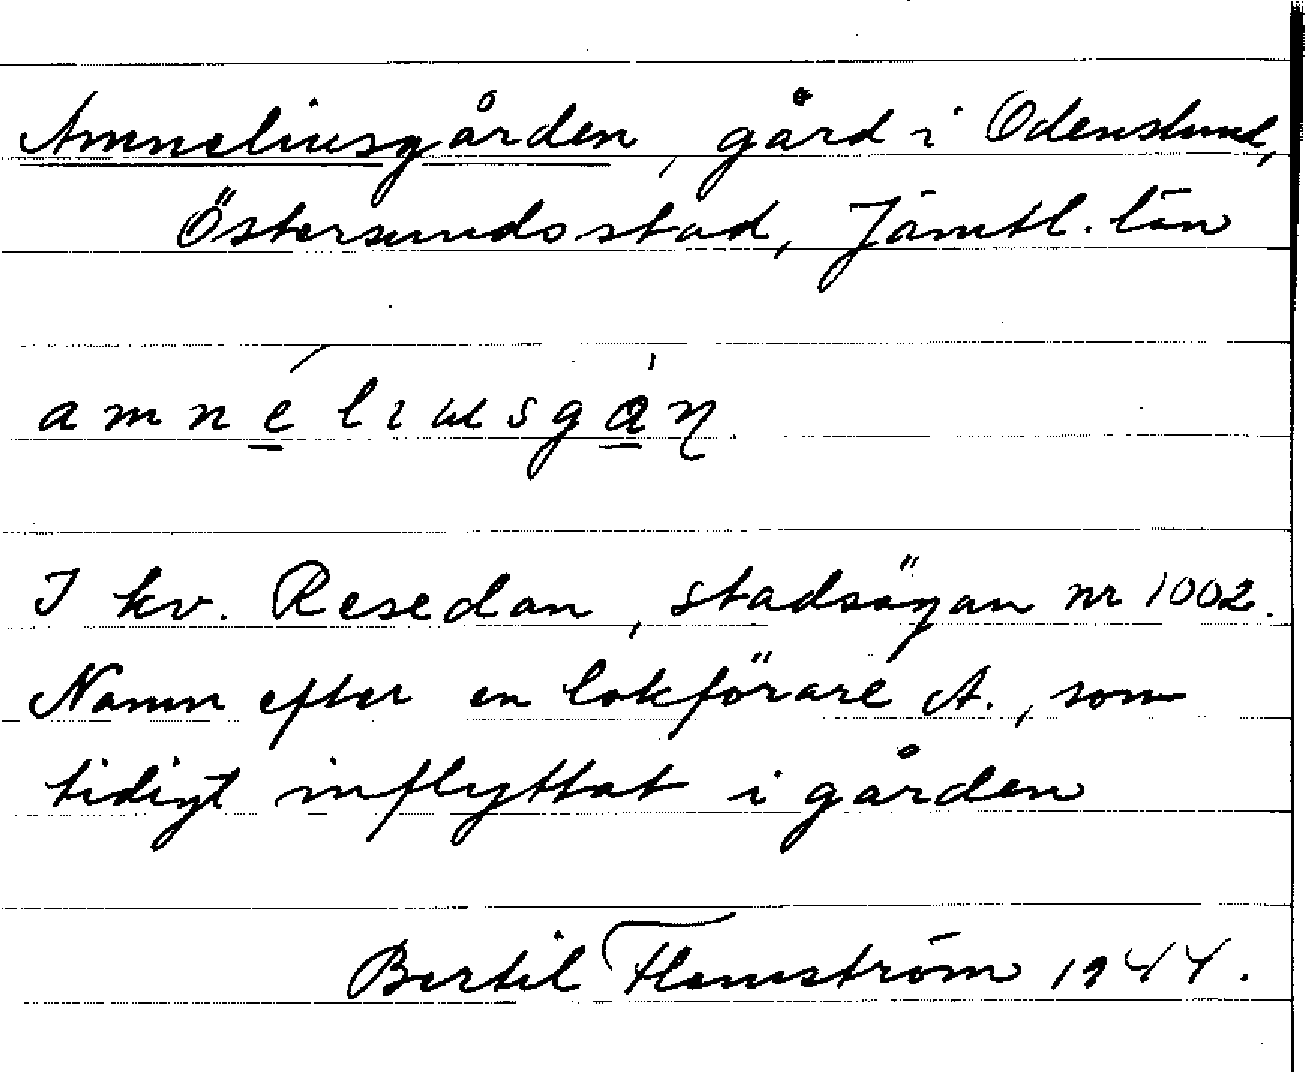 Amneliusgården, gård i Odenslund,
Östersunds stad, Jämtl. län
amnéliusgán.
I kv. Resedan, stadsägan nr 1002.
Namn efter en lokförare A., som
tidigt inflyttat i gården
Bertil Flemström 1944.